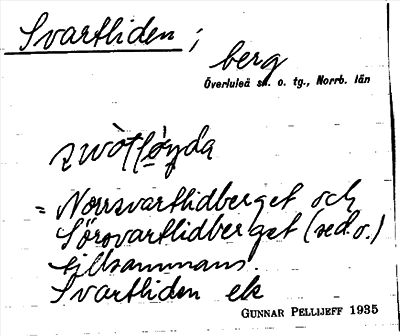 Svartliden ;
berg
Överluleå sn. o. tg., Norrb. län
= Norrsvartlidberget och
Sörsvartlidberget (sed. o.)
tillsammans
Svartliden ek
GUNNAR PELLIJEFF 1935